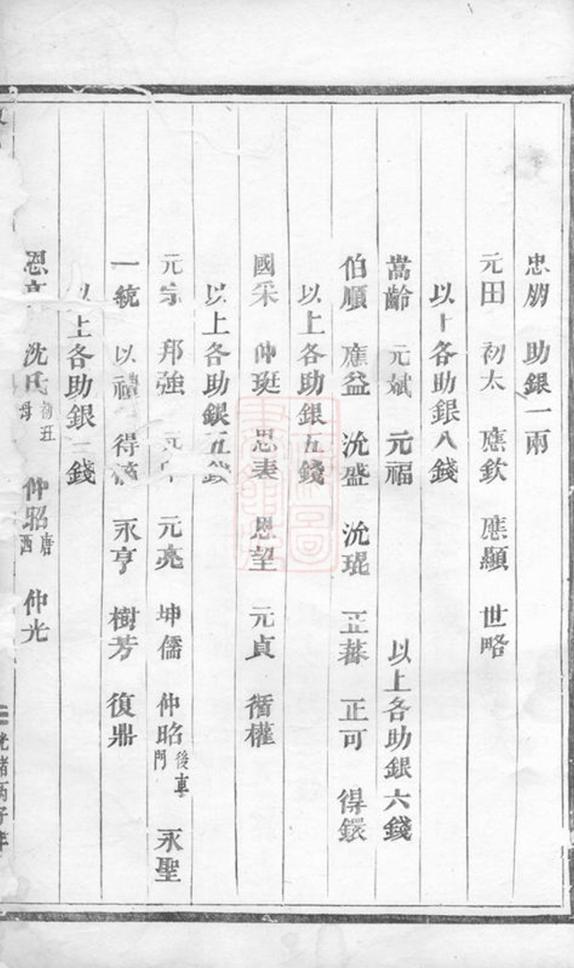 忠朋 助銀一兩
元田 初太 應欽 應顯 世略
以上各助銀八錢
嵩齡 元斌 元福 以上各助銀六錢
伯順 應益 沇盛 沇琨 正菶 正可 得鐶
以上各助銀五錢
國采 仲珽 思表 恩望 元貞 循權
以上各助銀五錢
元宗 邦強 元 元亮 坤儒 仲昭後車門 永聖
一統 以禮 得 永亨 樹芳 復鼎
以上各助銀二錢
恩 沈氏初丑母 仲昭唐西 仲光
光緒丙子年